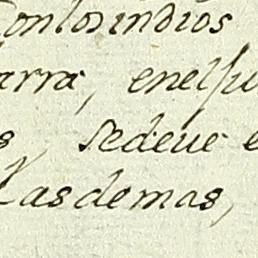 conlos indios
arra, enel su
s, sedeue e
Las demas,